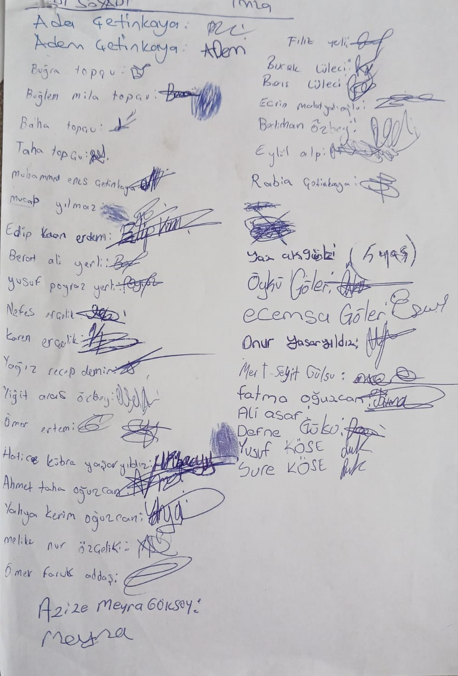 ADI SOYADI İmza
Ada Çetinkaya:
Adem Çetinkaya: Adem
Buğra topçu:
Buğlem mila topçu:
Baha topçu:
Taha topçu:
muhammed enes Çetinkaya
yılmaz
Edip kaan erdem:
Berat ali yerli:
yusuf poyraz yerli:
Nefes ergelik:
Karen ergelik:
Yağız recep demir:
Yiğit aras özbey:
Ömer ertem:
Hatice kübra yaşaryıldız:
Ahmet taha oğuzcan
Yahya kerim oğuzcan:
melike nur özçelik:
Ömer faruk
Azize Meyra GÖKSOY:
Meyra
Filiz yerli:
Burak Lüleci:
Barış Lüleci:
Ecrin
Batıhan özbey:
Eylül alp:
Rabia Çetinkaya:
(5 yaş)
Öykü Göler:
ecemsa Göler:
Onur Yaşaryıldız:
Mert Seyit Gülsu:
fatma oğuzcan:
Ali asar:
Defne Gökü:
Yusuf KÖSE
Sure KÖSE